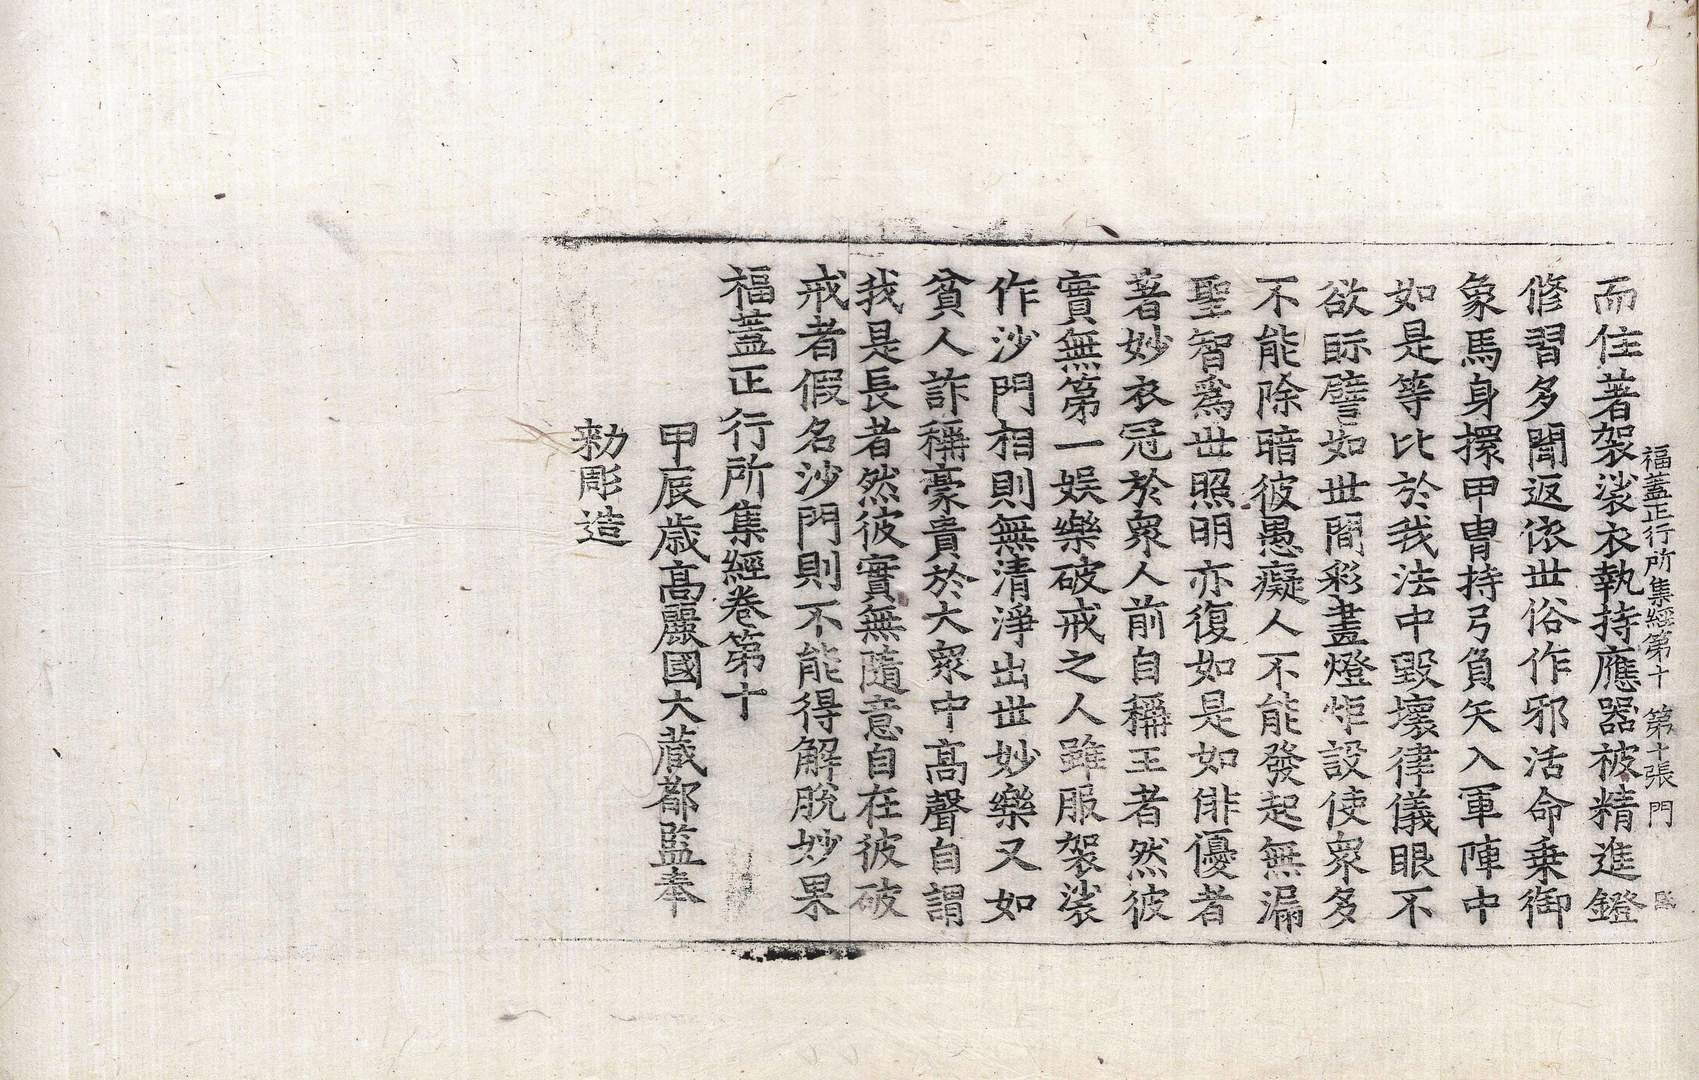 福蓋正行所集經第十 第十張 門
而住著袈裟衣執持應器被精進鎧
修習多聞返依世俗作邪活命乗御
象馬身擐甲冑持弓負矢入軍陣中
如是等比於我法中毀壞律儀眼不
欲眎譬如世間彩畫燈炬設使衆多
不能除暗彼愚癡人不能發起無漏
聖智爲世照明亦復如是如俳優者
著妙衣冠於衆人前自稱王者然彼
實無第一娱樂破戒之人雖服袈裟
作沙門相則無清淨出世妙樂又如
貧人詐稱豪貴於大衆中高聲自謂
我是長者然彼實無隨意自在彼破
戒者假名沙門則不能得解脫妙果
福蓋正行所集經卷第十
甲辰歳高麗國大藏都監奉
勑彫造